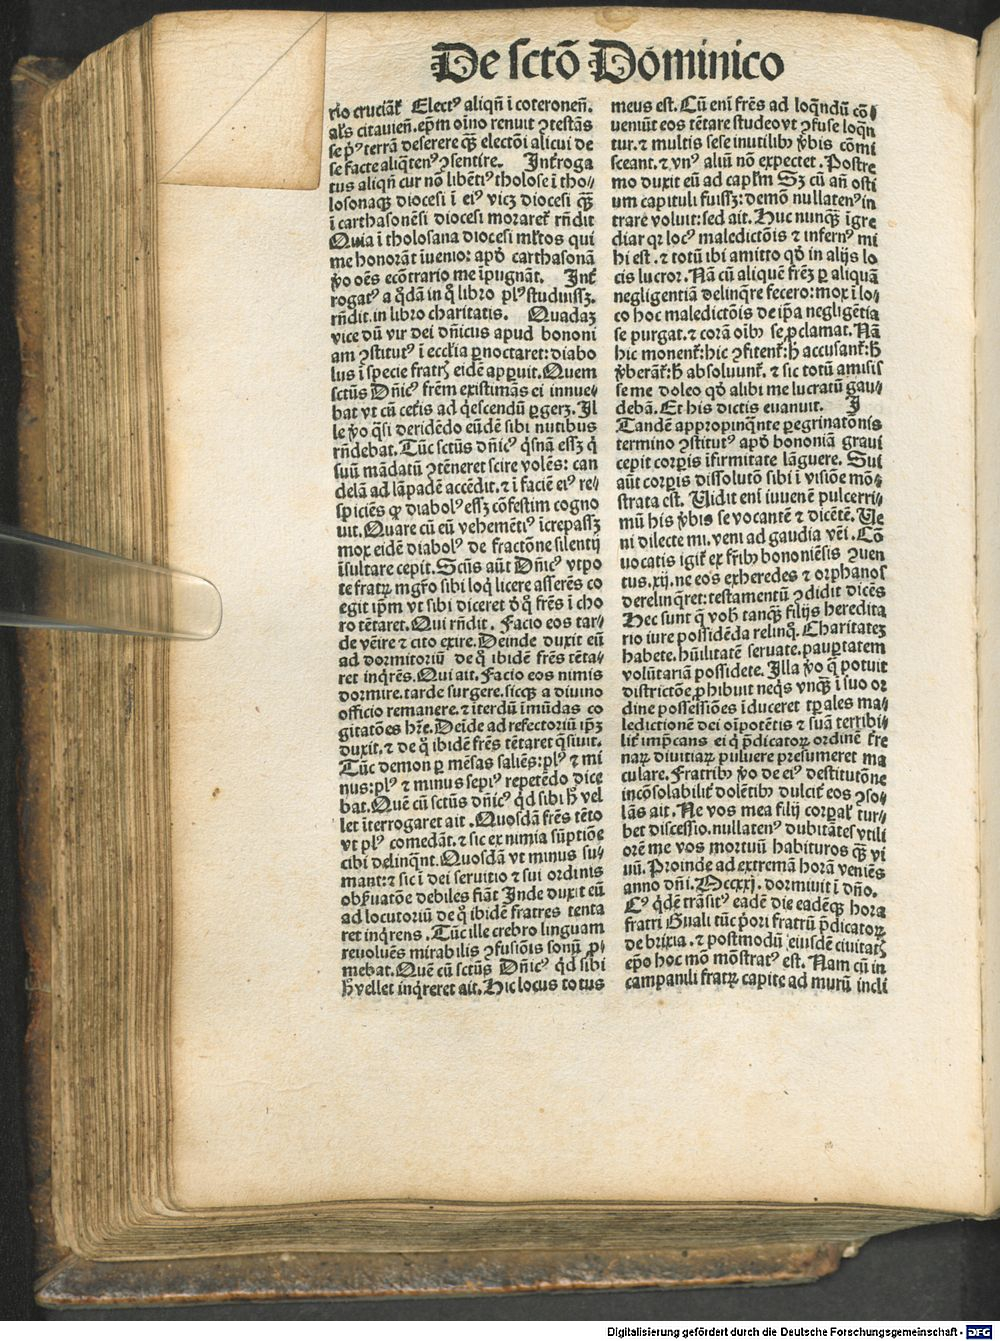 De sctō Dominico
rio cruciāt̃ Electꝰ aliqñ ī coteroneñ.
als citauieñ. ep̄m oīno renuit ⁊ testās
se pꝰ terrā deserere qꝫ electōi alicui de
se facte aliq̄tenꝰ ꝯsentire. Int̃roga
tus aliqñ cur nō libētiꝰ tholose ī tho⸗
losonaqꝫ diocesi ī eiꝰ vicꝫ diocesi qꝫ
ī carthasonēsi diocesi moraret̃ rñdit
Quia ī tholosana diocesi ml̃tos qui
me honorāt īuenio: apd̓ carthasonā
ṽo oēs ecōtrario me īpugnāt. Int̃
rogatꝰ a q̇dā in q̊ libro plꝰ studuissꝫ.
rñdit. in libro charitatis. Quadaꝫ
vice dū vir dei dñicus apud bononi
am ꝯstitutꝰ ī eccl̃ia ꝑnoctaret: diabo
lus ī specie fratꝭ eidē apꝑuit. Quem
sctūs Dñicꝰ frēm existimās ei innue⸗
bat vt cū cet̃is ad q̇escendū ꝑgerꝫ. Il
le ṽo q̄si deridēdo eūdē sibi nutibus
rñdebat. Tūc sctūs dñicꝰ q̇snā essꝫ q̇
suū mādatū ꝯtēneret scire volēs: can
delā ad lāpadē accēdit. ⁊ ī faciē eiꝰ re⸗
spiciēs qꝛ diabolꝰ essꝫ cōfestim cogno
uit. Quare cū eū vehemētiꝰ īcrepassꝫ
mox eidē diabolꝰ de fractōne silentij
īsultare cepit. Sctūs aūt Dñicꝰ vtpo
te fratrꝫ mgr̃o sibi loq̇ licere asserēs co
egit ip̄m vt sibi diceret d̓ q̊ frēs ī cho
ro tētaret. Qui rñdit. Facio eos tar⸗
de vēire ⁊ cito exire. Deinde duxit eū
ad dormitoriū de q̊ ibidē frēs tēta⸗
ret inq̇rēs. Qui ait. Facio eos nimis
dormire. tarde surgere. sicqꝫ a diuino
officio remanere. ⁊ īterdū īmūdas co
gitatōes hr̃e. Deīde ad refectoriū ip̄ꝫ
duxit. ⁊ de q̊ ibidē frēs tētaret q̄siuit.
Tūc demon ꝑ mēsas saliēs: plꝰ ⁊ mi
nus: plꝰ ⁊ minus sepiꝰ repetēdo dice
bat. Quē cū sctūs dñicꝰ q̇d sibi h̓ vel
let īterrogaret ait. Quosdā frēs tēto
vt plꝰ comedāt. ⁊ sic ex nimia sūptiōe
cibi delinq̄nt. Quosdā vt minus su⸗
mant: ⁊ sic ī dei seruitio ⁊ sui ordinis
obẜuatōe debiles fiāt Inde duxit eū
ad locutoriū de q̊ ibidē fratres tenta
ret inq̇rens. Tūc ille crebro linguam
reuoluēs mirabilis ꝯfusiōis sonū ꝓ⸗
mebat. Quē cū sctūs Dñicꝰ q̇d sibi
h̓ vellet inq̇reret ait. Hic locus totus
meus est. Cū eni frēs ad loq̄ndū cō⸗
ueniūt eos tētare studeo vt ꝯfuse loq̄n
tur. ⁊ multis sese inutilibꝫ ṽbis cōmi
sceant. ⁊ vnꝰ aliū nō expectet. Postre
mo duxit eū ad capl̃m Sꝫ cū añ osti
um capituli fuissꝫ: demō nullatenꝰ in
trare voluit: sed ait. Huc nunqꝫ īgre
diar qꝛ locꝰ maledictōis ⁊ infernꝰ mi
hi est. ⁊ totū ibi amitto qd̓ in alijs lo
cis lucror. Nā cū aliquē frēꝫ ꝑ aliquā
negligentiā delinq̄re fecero: mox ī lo⸗
co hoc maledictōis de ip̄a negligētia
se purgat. ⁊ corā oībꝫ se ꝓclamat. Nā
hic monent̃: hic ꝯfitent̃: h̓ accusant̃: h̓
ṽberāt̃: h̓ absoluunt̃. ⁊ sic totū amisis
se me doleo qd̓ alibi me lucratū gau⸗
debā. Et his dictis euanuit. I
Tandē appropinq̄nte ꝑegrinatōnis
termino ꝯstitutꝰ apd̓ bononiā graui
cepit corꝑis īfirmitate lāguere. Sui
aūt corꝑis dissolutō sibi ī visiōe mō⸗
strata est. Uidit eni iuuenē pulcerri⸗
mū his ṽbis se vocantē ⁊ dicētē. Ue
ni dilecte mi. veni ad gaudia vēi. Cō
uocatis igit̃ ex fr̃ibꝫ bononiēsis ꝯuen
tus. xij. ne eos exheredes ⁊ orphanos
derelinq̄ret: testamentū ꝯdidit dicēs
Hec sunt q̄ vob̓ tanqꝫ filijs heredita
rio iure possidēda relinq̊. Charitateꝫ
habete. hūilitatē seruate. pauꝑtatem
volūtariā possidete. Illa ṽo q̊ potuit
districtōe ꝓhibuit neq̇s vnqꝫ ī suo or
dine possessiōes īduceret tꝑales ma⸗
ledictionē dei oīpotētis ⁊ suā terribi⸗
lit̃ imp̄cans ei q̇ p̄dicatoꝝ ordinē t̓re
naꝝ diuitiaꝝ puluere presumeret ma
culare. Fratribꝫ ṽo de eiꝰ destitutōne
incōsolabilit̃ dolentibꝫ dulcit̃ eos ꝯso⸗
lās ait. Ne vos mea filij corꝑal̃ tur⸗
bet discessio. nullatenꝰ dubitātes vtili
orē me vos mortuū habituros qꝫ vi
uū. Proinde ad extremā horā veniēs
anno dñi. Mccxxj. dormiuit ī dño.
Cꝰ q̇dē trāsitꝰ eadē die eadēqꝫ hora
fratri Guali tūc p̓ori fratrū p̄dicatoꝝ
de brixia. ⁊ postmodū eiusdē ciuitatꝭ
ep̄o hoc mō mōstratꝰ est. Nam cū in
campanili fratrꝫ capite ad murū incli
Digitalisierung gefördert durch die Deutsche Forschungsgemeinschaft - DFG